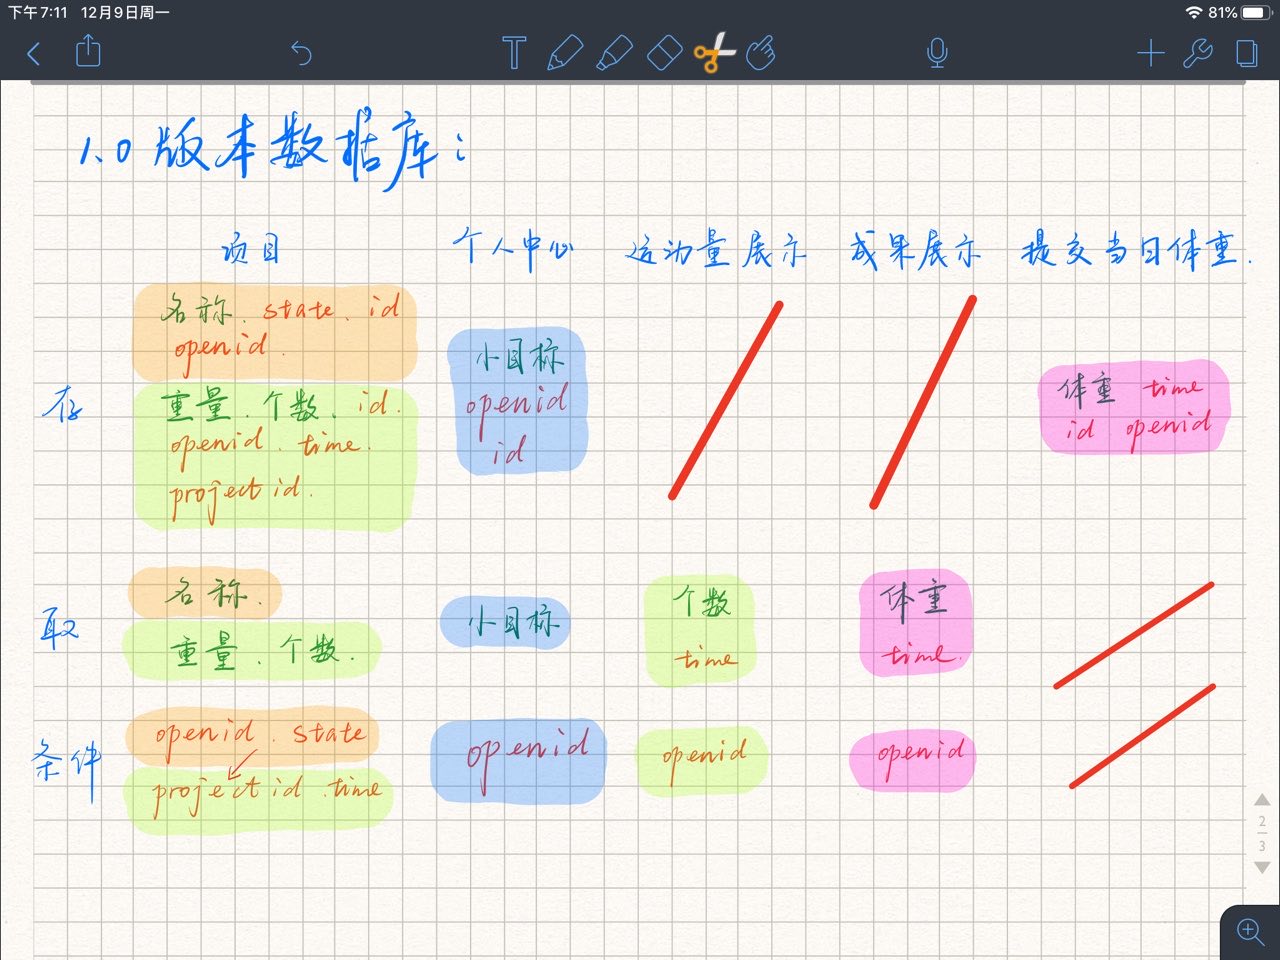 下午7:11 12月9日周一
81%
T
1.0版本数据库:
项目 个人中心 运动量展示 成果展示 提交当日体重.
存
名称、state、id
openid.
重量、个数、id.
openid、time.
project id.
小目标
openid
id
体重 time
id openid
取
名称.
重量、个数.
小目标
个数
time
体重
time.
条件
openid、state
project id、time
openid
openid
openid
2
3